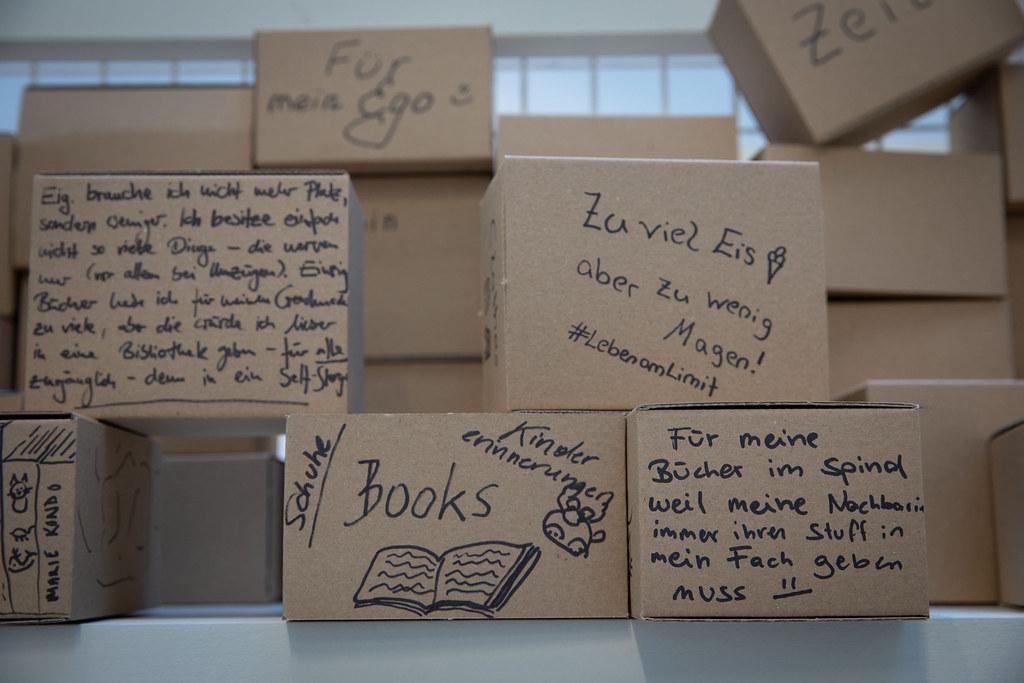 Für
mein Ego
Zeit
Eig. brauche ich nicht mehr Platz,
sondern weniger. Ich besitze einfach
nicht so viele Dinge – die nerven
nur (vor allem bei Umzügen). Einzig
Bücher habe ich für meinen Geschmack
zu viele, aber die würde ich lieber
in eine Bibliothek geben – für alle
zugänglich – denn in ein Self-Storage
Zu viel Eis
aber zu wenig
Magen!
#LebenamLimit
MARIE KONDO
Schuhe
Books
Kinder
erinnerungen
Für meine
Bücher im Spind
weil meine Nachbarin
immer ihren Stuff in
mein Fach geben
muss